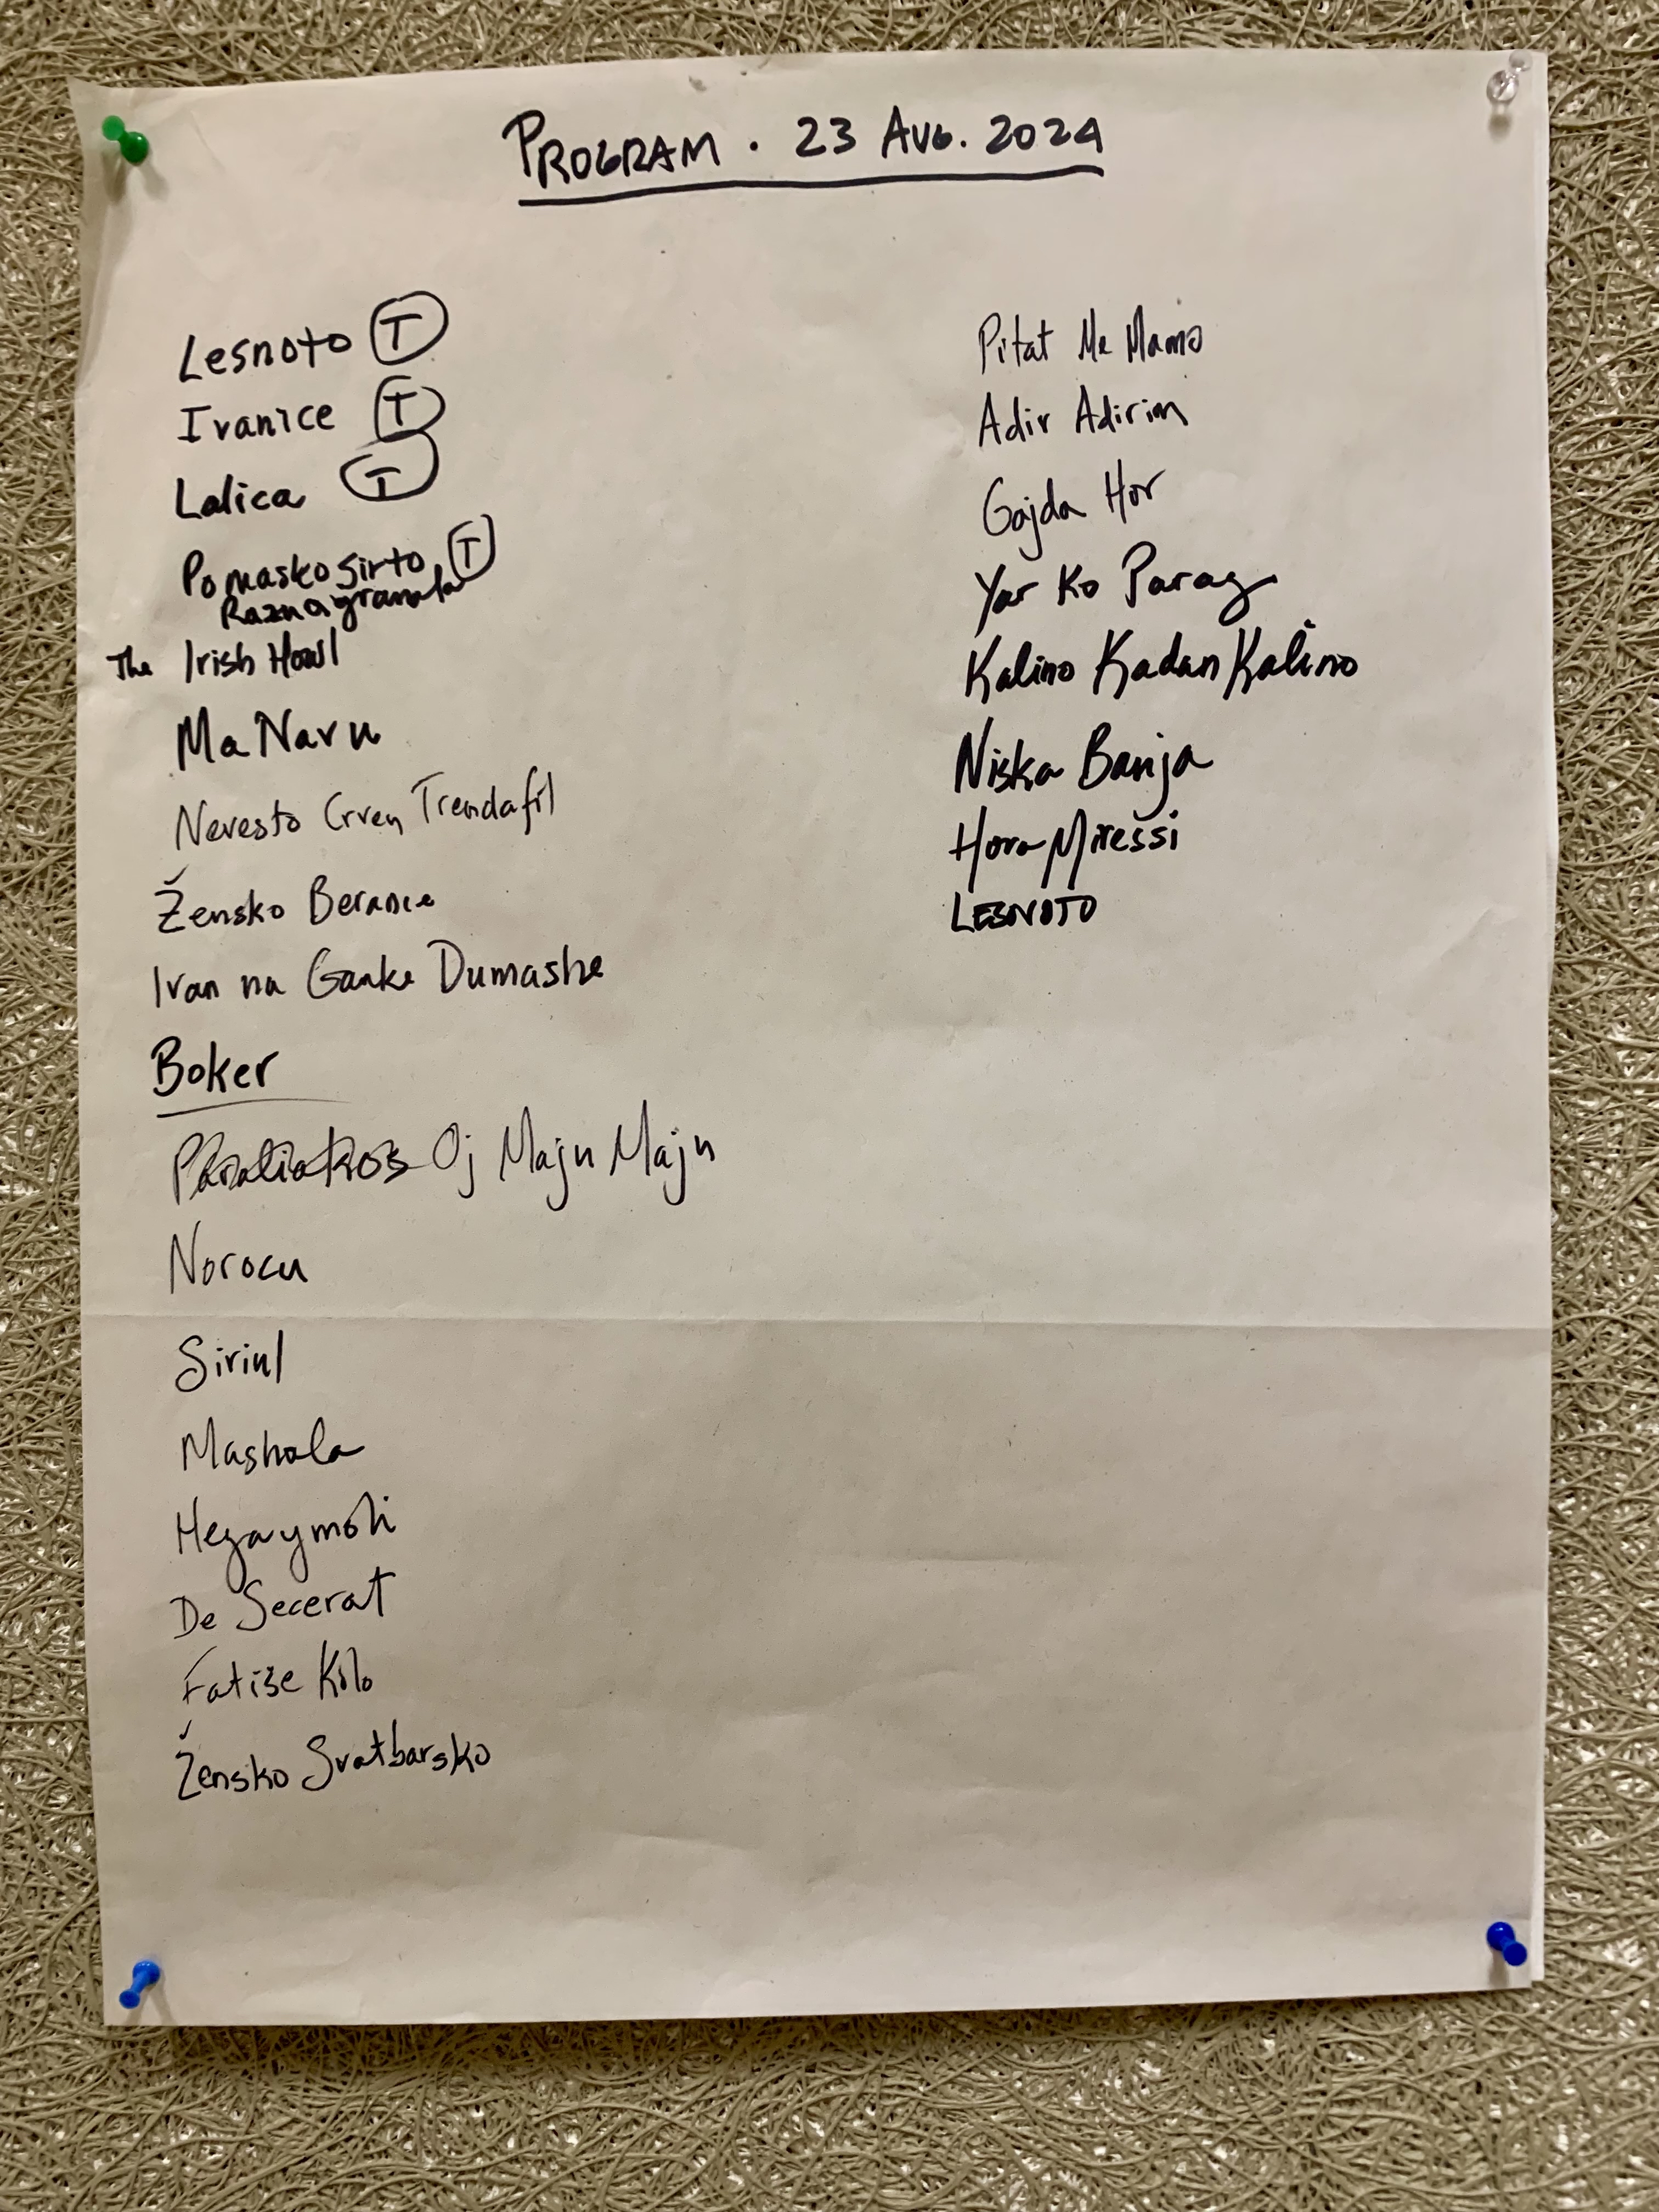 PROGRAM . 23 AUG. 2024
Lesnoto T
Ivanice T
Lalica T
Pomasko Sirto T
Raznagranula
The Irish Howl
Ma Navu
Nevesto Crven Trendafil
Žensko Beranče
Ivan na Ganke Dumashe
Boker
Oj Maju Maju
Norocu
Siriul
Mashala
De Secerat
Fatiše Kolo
Žensko Svatbarsko
Pitat Me Mamo
Adir Adirim
Gajda Hor
Yar Ko Parag
Kalino Kadan Kalino
Niska Banja
Hora Miressi
LESNOTO